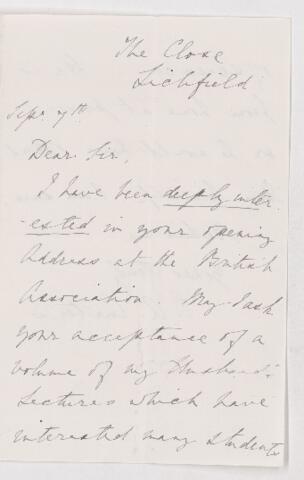 The Close
Lichfield
Sepr. 7th
Dear Sir,
I have been deeply inter-
ested in your opening
Address at the British
Association. May I ask
your acceptance of a
volume of my Husband's
Lectures which have
interested many students